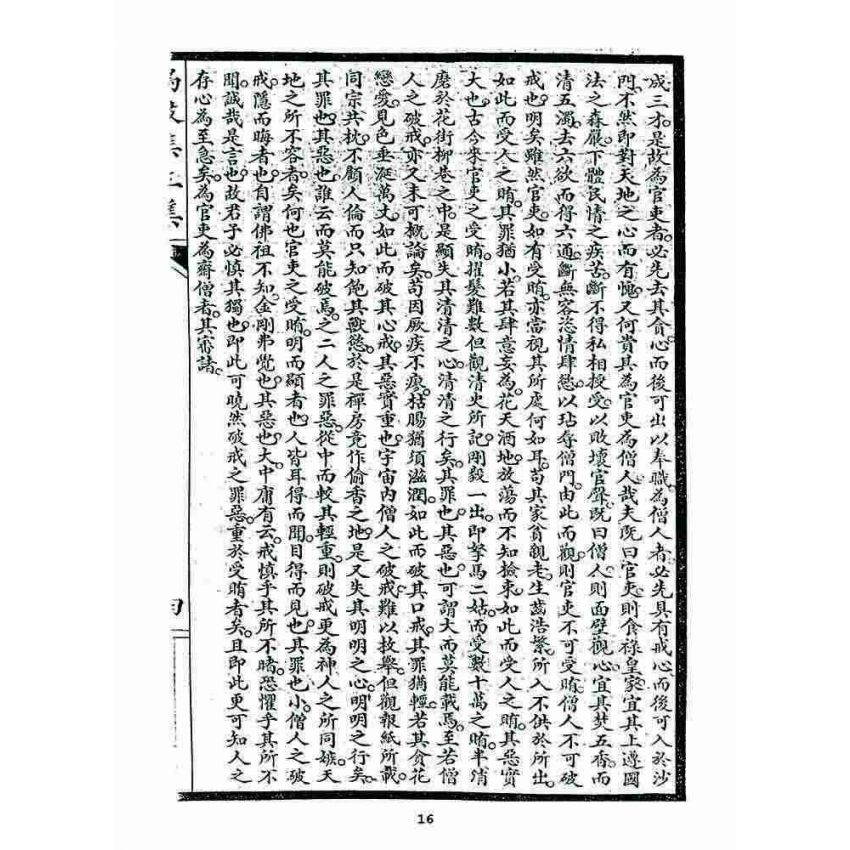 成三才是故為官吏者。必先去其貪心而後可出以奉職為僧人者必先具有戒心而後可入於沙
門不然即對天地之心而有愧又何貴其為官吏為僧人哉夫既曰官吏則食祿皇家宜其上遵國
法之森嚴下體民情之疾苦。斷不得私相授受以敗壞官聲既曰僧人則面壁觀心宜其焚五香而
清五濁去六欲而得六通斷無容恣情肆慾以玷辱僧門由此而觀則官吏不可受賄僧人不可破
戒也明矣雖然官吏如有受賄亦當視其所處何如耳苟其家貧親老生齒浩繁所入不供於所出。
如此而受人之賄其罪猶小若其肆意妄為花天酒地放蕩而不知撿束如此而受人之賄其惡實
大也古今來官吏之受賄擢髮難數但觀清史所記剛毅一出即拏馬二姑而受數十萬之賄半消
磨於花街柳巷之中是顯失其清清之心清清之行矣其罪也其惡也可謂大而莫能載焉至若僧
人之破戒亦又未可概論矣苟因厥疾不瘳枯腸猶須滋潤如此而破其口戒其罪猶輕若其貪花
戀愛見色垂涎萬丈如此而破其心戒其惡實重也宇宙內僧人之破戒難以枚舉但觀報紙所載
同宗共枕不顧人倫而只知飽其獸慾於是禪房竟作偷香之地是又失其明明之心明明之行矣。
其罪也其惡也誰云而莫能破焉之二人之罪惡從中而較其輕重則破戒更為神人之所同嫉天
地之所不容者矣何也官吏之受賄明而顯者也人皆耳得而聞目得而見也其罪也小僧人之破
戒隱而晦者也自謂佛祖不知金剛弗覺也其惡也大中庸有云戒慎乎其所不睹恐懼乎其所不
聞誠哉是言也故君子必慎其獨也即此可曉然破戒之罪惡重於受賄者矣且即此更可知人之
存心為至急矣為官吏為齋僧者其審諸。
集
四
16